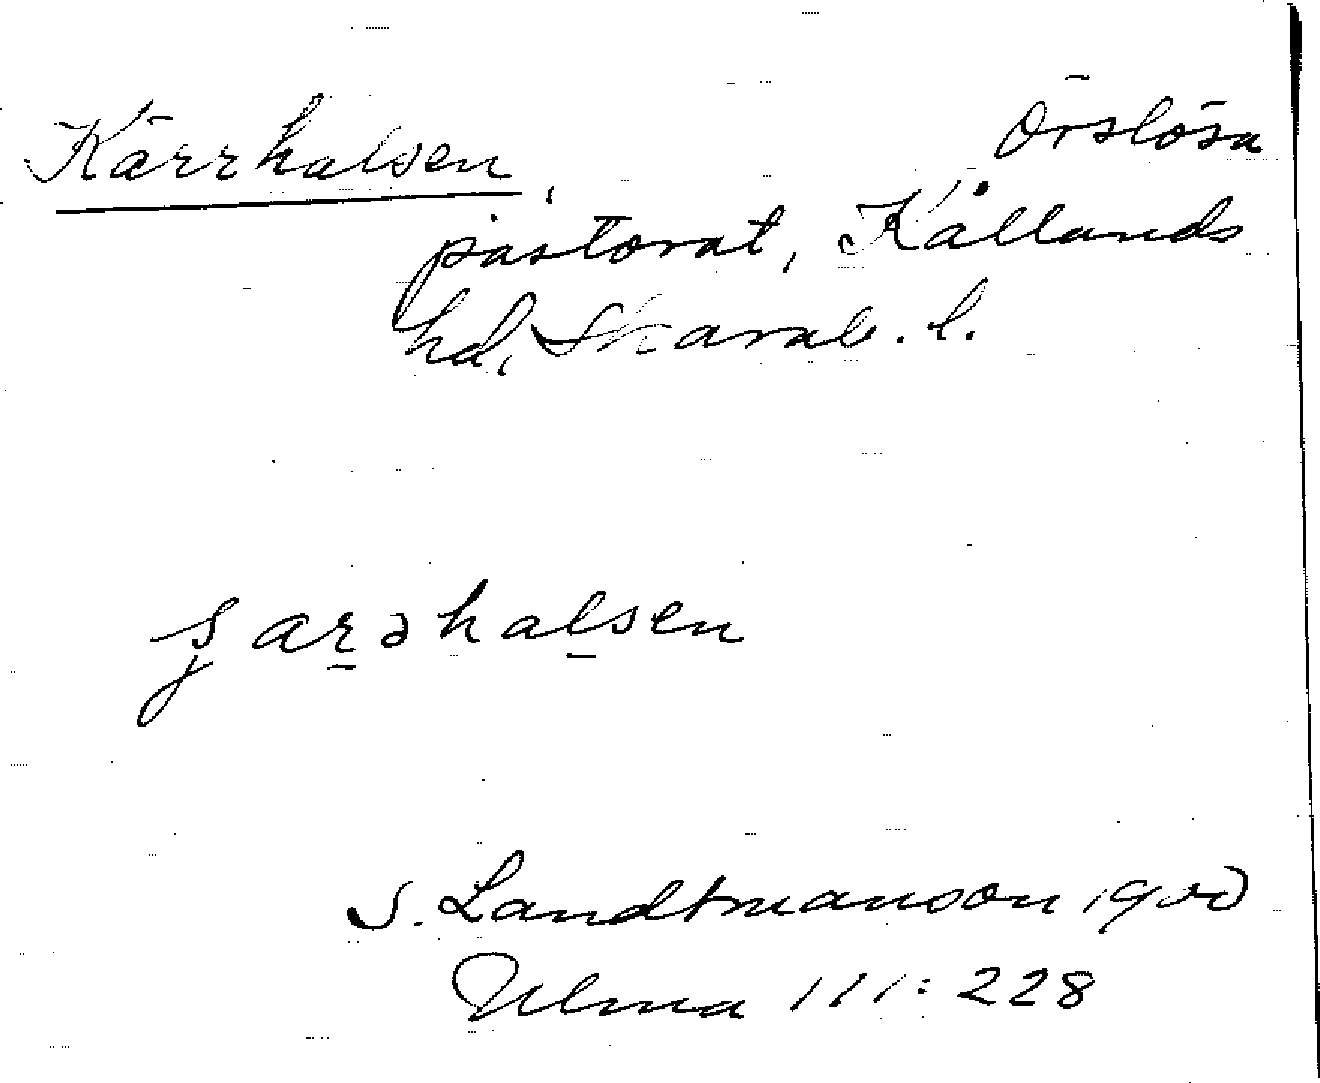 Kärrhalsen, Örslösa
pastorat, Kållands
hd, Skarab. l.
S. Landtmanson 1900
Ulma 111:228